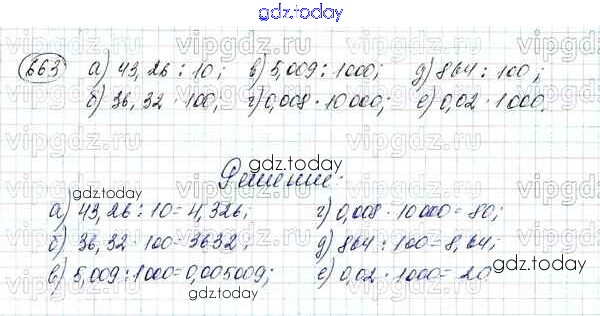 gdz.today
663 а) 43,26 : 10; в) 5,009 : 1000; д) 864 : 100;
б) 36,32 · 100; г) 0,008 · 10000; е) 0,02 · 1000.
Решение:
gdz.today
а) 43,26 : 10 = 4,326; г) 0,008 · 10000 = 80;
б) 36,32 · 100 = 3632; д) 864 : 100 = 8,64;
в) 5,009 : 1000 = 0,005009; е) 0,02 · 1000 = 20
gdz.today
gdz.today
gdz.today